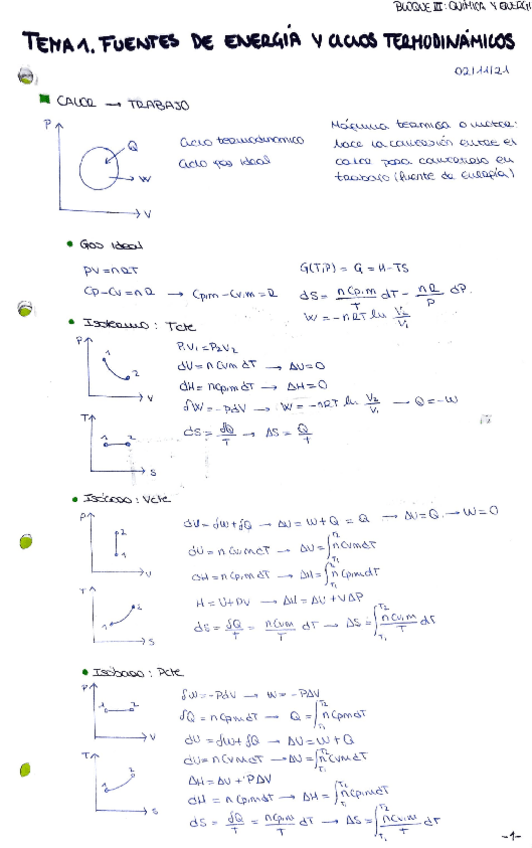 BLOQUE III: QUÍMICA Y ENERGÍ
TEMA 1. FUENTES DE ENERGÍA Y CICLOS TERMODINÁMICOS
02/11/21
CALOR → TRABAJO
P
Q
W
V
Ciclo termodinámico
Ciclo gas ideal
Máquina térmica o motor:
hace la conversión entre el
calor para convertirlo en
trabajo (fuente de energía)
• Gas ideal
PV = nRT
Cp - Cv = nR → Cp,m - Cv,m = R
G(T,P) = G = H - TS
dS = nCp,m/T dT - nR/P dP
W = -nRT ln V2/V1
• Isotermo: Tcte
P
1
2
V
T
1 2
S
P1V1 = P2V2
dU = nCvm dT → ΔU = 0
dH = nCpm dT → ΔH = 0
δW = -PdV → W = -nRT ln V2/V1 → Q = -W
dS = δQ/T → ΔS = Q/T
• Isócoro: Vcte
P
2
1
V
T
1
2
S
dU = δW + δQ → ΔU = W + Q = Q → ΔU = Q → W = 0
dU = nCvm dT → ΔU = ∫T1T2 nCvm dT
dH = nCpm dT → ΔH = ∫T1T2 nCpm dT
H = U + PV → ΔH = ΔU + VΔP
dS = δQ/T = nCvm/T dT → ΔS = ∫T1T2 nCv,m/T dT
• Isóbaro: Pcte
P
1 2
V
T
1
2
S
δW = -PdV → W = -PΔV
δQ = nCpm dT → Q = ∫T1T2 nCpm dT
dU = δW + δQ → ΔU = W + Q
dU = nCvm dT → ΔU = ∫T1T2 nCvm dT
ΔH = ΔU + PΔV
dH = nCpm dT → ΔH = ∫T1T2 nCp,m dT
dS = δQ/T = nCp,m/T dT → ΔS = ∫T1T2 nCv,m/T dT
-1-